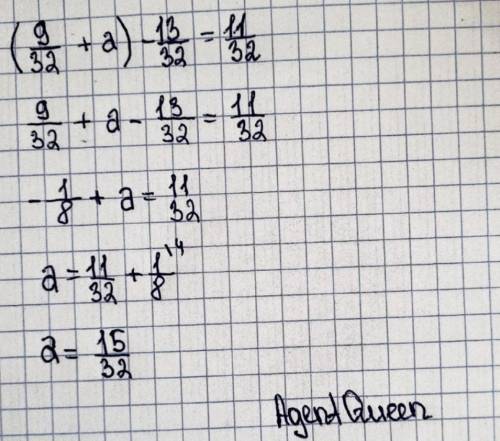 (9/32 + a) - 13/32 = 11/32
9/32 + a - 13/32 = 11/32
-1/8 + a = 11/32
a = 11/32 + 1/8 \4
a = 15/32
Agend Queen